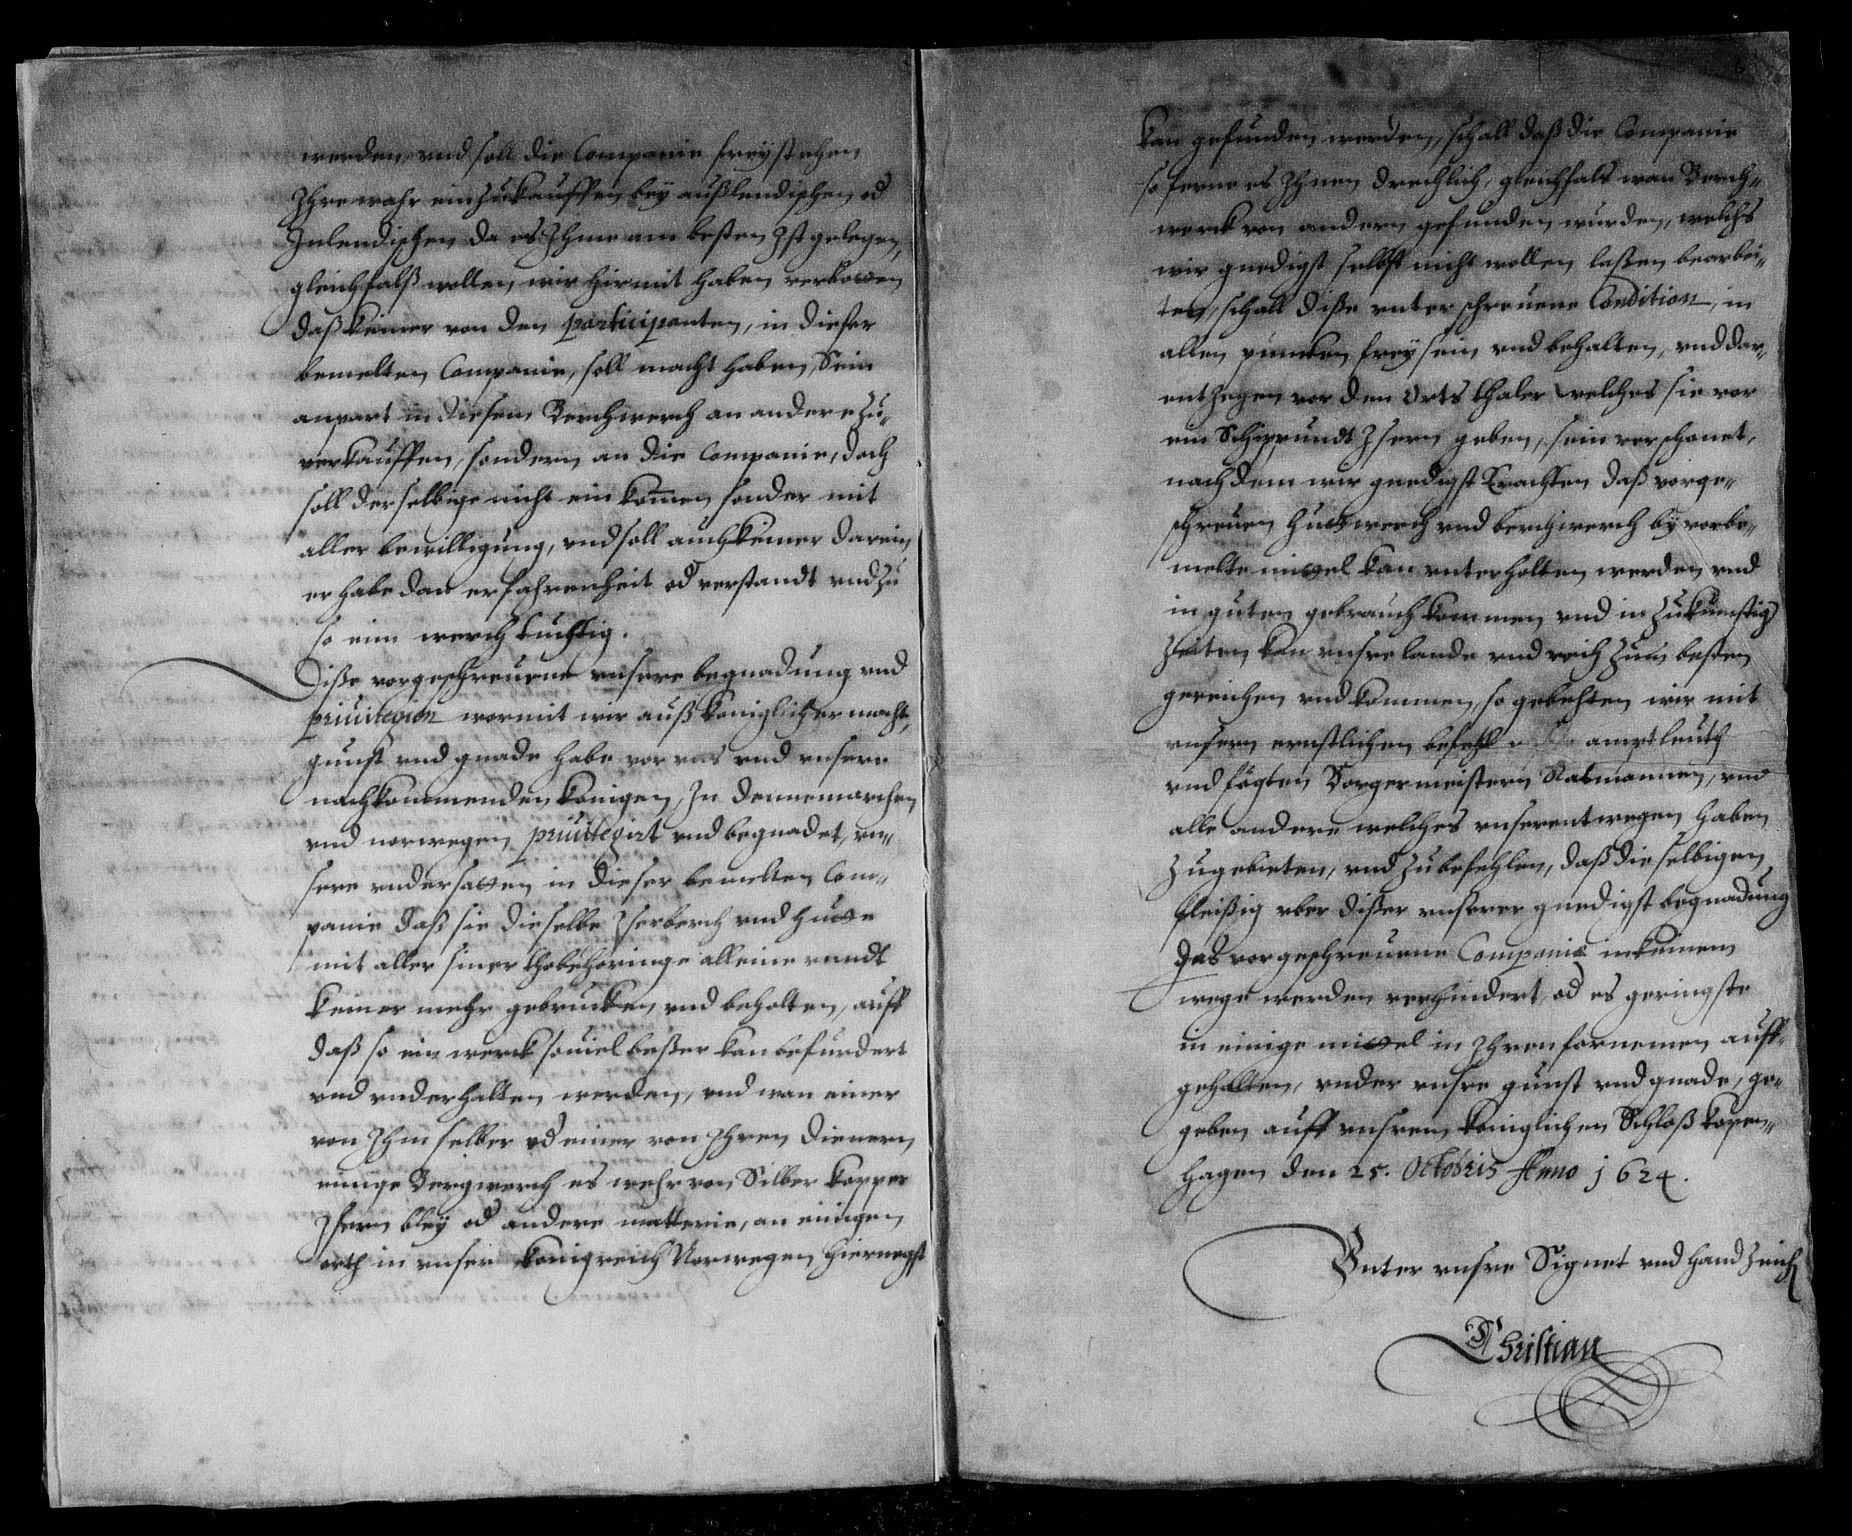 werden, vnd soll die Companie freystehen
Ihre wahr einzukauffen bey außlendischen od
Inlendischen da es Ihme am besten Ist gelegen,
gleichfalß wollen wir hirmit haben verbotten
daß keiner von den participanten, in dieser
bemelten Companie, soll macht haben, Sein
anpart in diesem Berchwerch an andere zu-
verkauffen, sondern an die Companie, doch
soll derselbige nicht ein kommen sonder mit
aller bewilligung, vnd soll auch keiner darein
er habe dan erfahrenheit od verstandt vnd zu
so einn werch tuchtig.
Diße vorgeschreuene vnsere begnadung vnd
priuilegion wormit wir auß koniglicher macht,
gunst vnd gnade habe vor vns vnd vnsere
nachkommenden konigen, In dennemarchen
vnd norwegen priuilegirt vnd begnadet, vn-
sere vndersatten in dieser bemelten Com-
panie daß sie dieselbe Iserberch vnd hutte
mit aller siner thobehoringe alleine vnndt
keiner mehr gebrucken vnd beholten, auff
daß so ein werck souiel beßer kan befurdert
vnd vnderhalten werden, vnd wan einer
von Ihm selber od einer von Ihren dienern
einige Bergwerch es wehr von Silber kopper
Isern bley od andere matterie, an einigen
orth in vnser konigreich Norwegen hiernegst
kan gefunden werden, schall daß die Companie
so ferne es Ihnen drechlich, gleichfals wan Berch-
werck von andern gefunden wurden, welchs
wir gnedigst selbst nicht wollen laßen bearbei-
ten, schall diße vnterschreuene Condition, in
allen puncten frey sein vnd behalten, vnd dar-
enthegen vor den Orts thaler welches sie vor
ein Schippundt Isern geben, sein verschonet,
nachdem wir gnedigst Erachten daß vorge-
schreuen huttwerch vnd berchwerch by vorbe-
melte mittel kan vnterholten werden vnd
in guten gebrauch kommen vnd in zukunftig
zeiten kan vnsre lande vnd reich zum besten
gereichen vnd kommen, so gebiehten wir mit
vnsern ernstlichen befehl amptleuth
vnd fögten Borgermeistern Ratmannen, vnd
alle andere welches vnserentwegen haben
zugebieten, vnd zu befehlen, daß dieselbigen
fleißig vber dißer vnßerer gnedigst begnadung
das vorgeschreuene Companie in keinem
wege werden verhindert, od es geringste
in einige mittel in Ihren fornemen auff-
gehalten, vnder vnsre gunst vnd gnade, ge-
geben auff vnsrem koniglichen Schloß kopen-
hagen den 25. Octobris Anno 1624.
Vnter vnsre Signet vnd handzeich
Christian